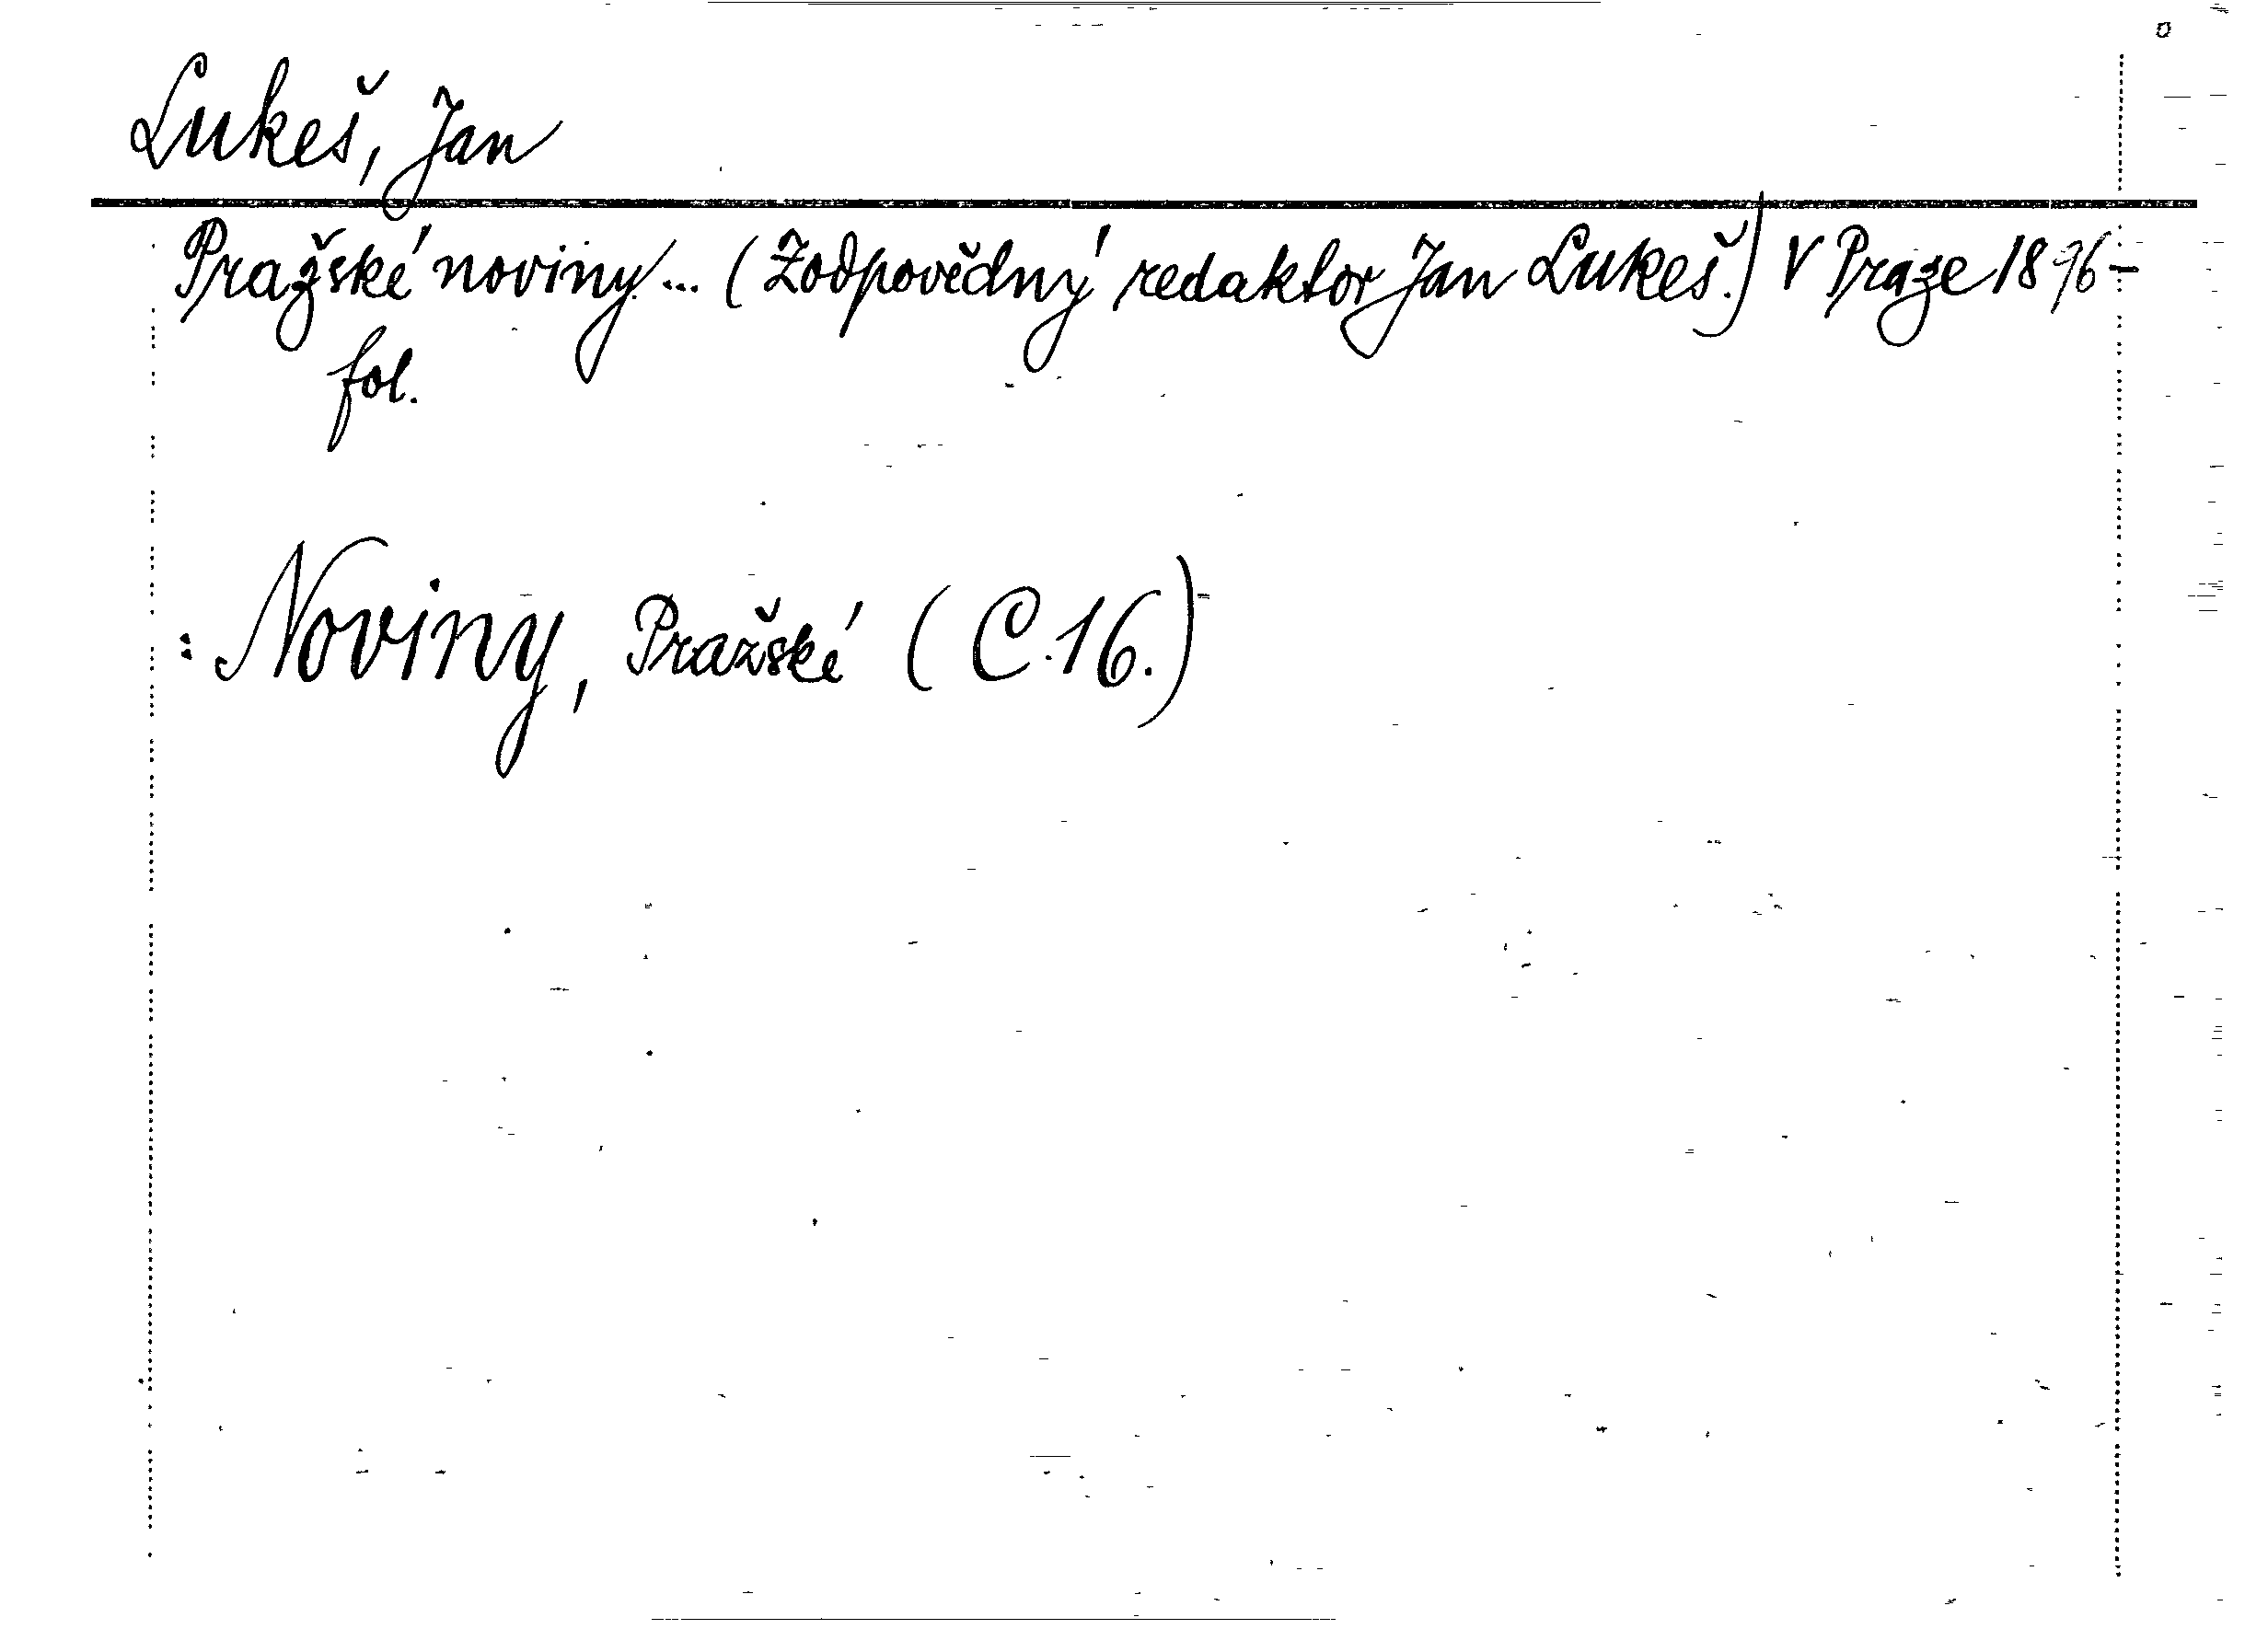 Lukeš, Jan
Pražské noviny... (Zodpovědný redaktor Jan Lukeš.) V Praze 1896-
fol.
: Noviny, Pražské (C.16.)